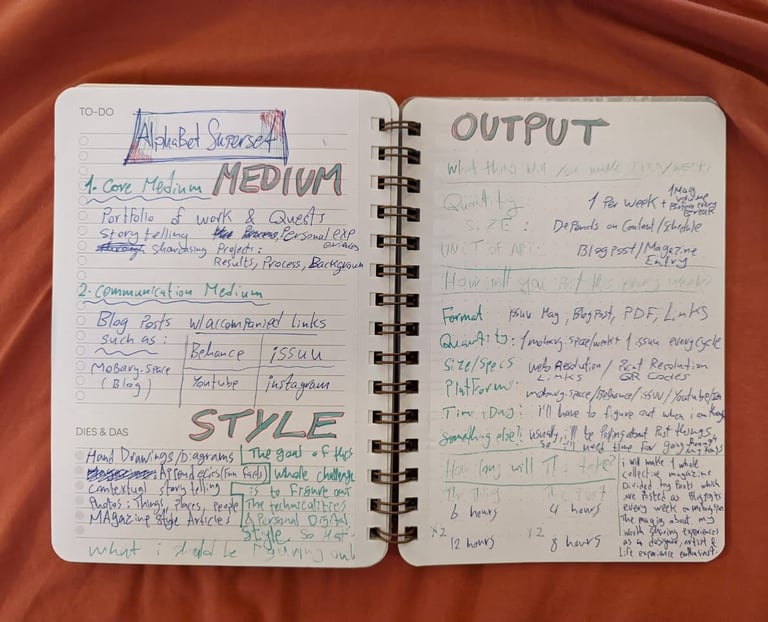 TO-DO
AlphaBet Superset
MEDIUM
1. Core Medium
Portfolio of work & Quests
Storytelling Personal experiences
Showcasing Projects:
Results, Process, Background
2. Communication Medium
Blog Posts w/accompanied links
such as:
Behance issuu
Mobary.Space (Blog)
Youtube instagram
STYLE
DIES & DAS
Hand Drawings/Diagrams
(fun facts)
Contextual story telling
Photos: Things, Places, People
MAgazine Style Articles
The goal of this
whole challenge
is to Figure out
The technicalities
& Personal Digital
Style. So that
what i should be Figuring out
OUTPUT
what thing will you make every week?
Quantity 1 Per week + 1 Mag
Before every Break
SIZE: Depends on Content/Schedule
UNIT OF Blog Post/Magazine Entry
How will you Post this every week?
Format issuu Mag, Blog Post, PDF, Links
Quantity: 1 mobary.space/week + 1 issuu every cycle
Size/Specs Web Resolution/ Print Resolution
Links QR Codes
Platforms: mobary.space/Behance/issuu/Youtube/
Time & Day: I'll have to figure out when i
Something else?: usually i'll be Posting about Past things
so i'll need time for going through
How long will This take?
The Thing The Post
6 hours 4 hours
x2
12 hours 8 hours
i will make 1 whole
collective magazine
Divided by Posts which
are Posted as Blog Posts
every week on mobary.space
The mag is about my
work sharing experiences
as a designer, artist &
Life experience enthusiast.